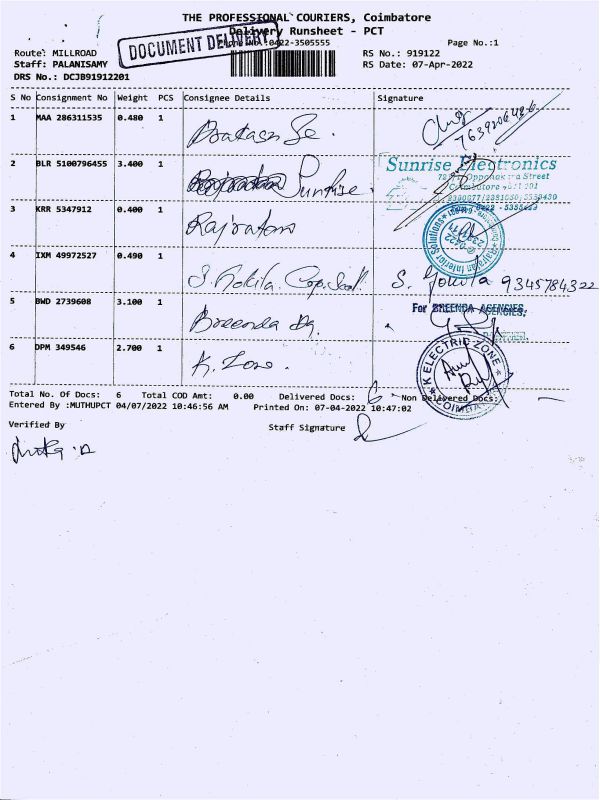 THE PROFESSIONAL COURIERS, Coimbatore
Delivery Runsheet - PCT
DOCUMENT DELIVERY
Phone No.:0422-3505555
Page No.:1
Route: MILLROAD
RS No.: 919122
Staff: PALANISAMY
RS Date: 07-Apr-2022
DRS No.: DCJB91912201
S No Consignment No Weight PCS Consignee Details Signature
1 MAA 286311535 0.480 1
7639206426
2 BLR 5100796455 3.400 1 Sunrise
Sunrise Electronics
Street
3 KRR 5347912 0.400 1
4 IXM 49972527 0.490 1
9345784322
5 BWD 2739608 3.100 1 Breenda
For BREENDA AGENCIES.
6 DPM 349546 2.700 1 K. Zone.
K ELECTRIC ZONE
Total No. Of Docs: 6 Total COD Amt: 0.00 Delivered Docs: 6 Non Delivered Docs: -
Entered By :MUTHUPCT 04/07/2022 10:46:56 AM Printed On: 07-04-2022 10:47:02
Verified By
Staff Signature